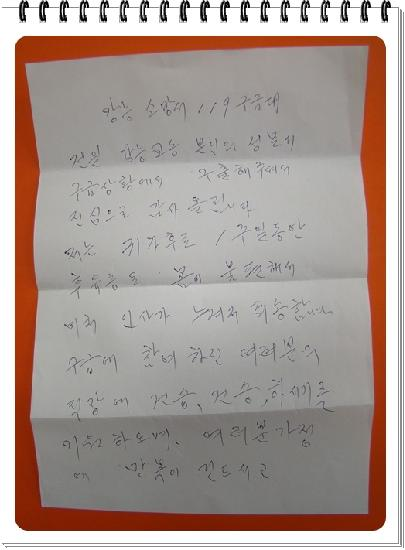 소방서 119 구급대
전일
구급상황에서 구출해 주셔서
진심으로 감사 올립니다
저는 귀가후로 1주일동안
후유증으로 몸이 불편해서
미처 인사가 늦어서 죄송합니다
구급에 참여하신 여러분의
직장에 건승, 건승, 하시기를
기원하오며, 여러분가정
에 만복이 깃드시고